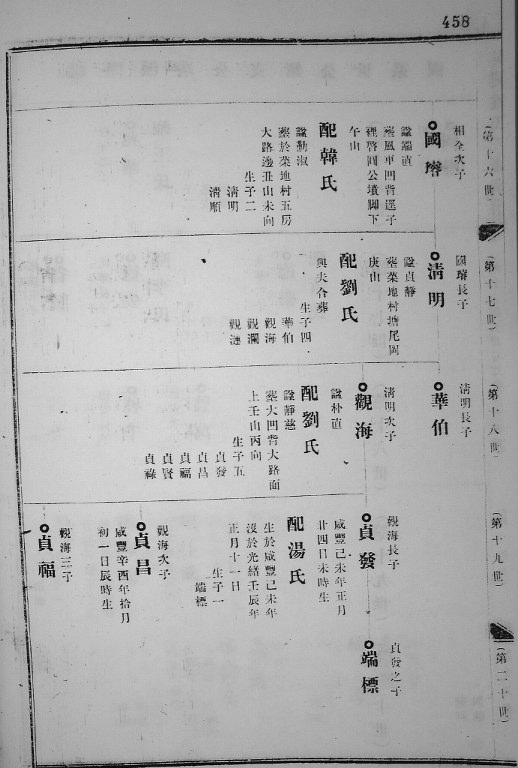 458
(第十六世)
相全次子
國璿
諡端直
葬風車凹背選子
裡啓圓公墳脚下
午山
配韓氏
諡勤淑
葬於菜地村五房
大路邊丑山未向
生子二
清明
清順
(第十七世)
國璿長子
清明
諡貞靜
葬菜地村塘尾岡
庚山
配劉氏
與夫合葬
生子四
華伯
觀海
觀瀾
觀漣
(第十八世)
清明長子
華伯
清明次子
觀海
諡朴直
配劉氏
諡靜慈
葬大凹背大路面
上壬山丙向
生子五
貞發
貞昌
貞福
貞賢
貞祿
(第十九世)
觀海長子
貞發
咸豐己未年正月
廿四日未時生
配湯氏
生於咸豐己未年
沒於光緒壬辰年
正月十一日
生子一
端標
觀海次子
貞昌
咸豐辛酉年拾月
初一日辰時生
觀海三子
貞福
(第二十世)
貞發之子
端標